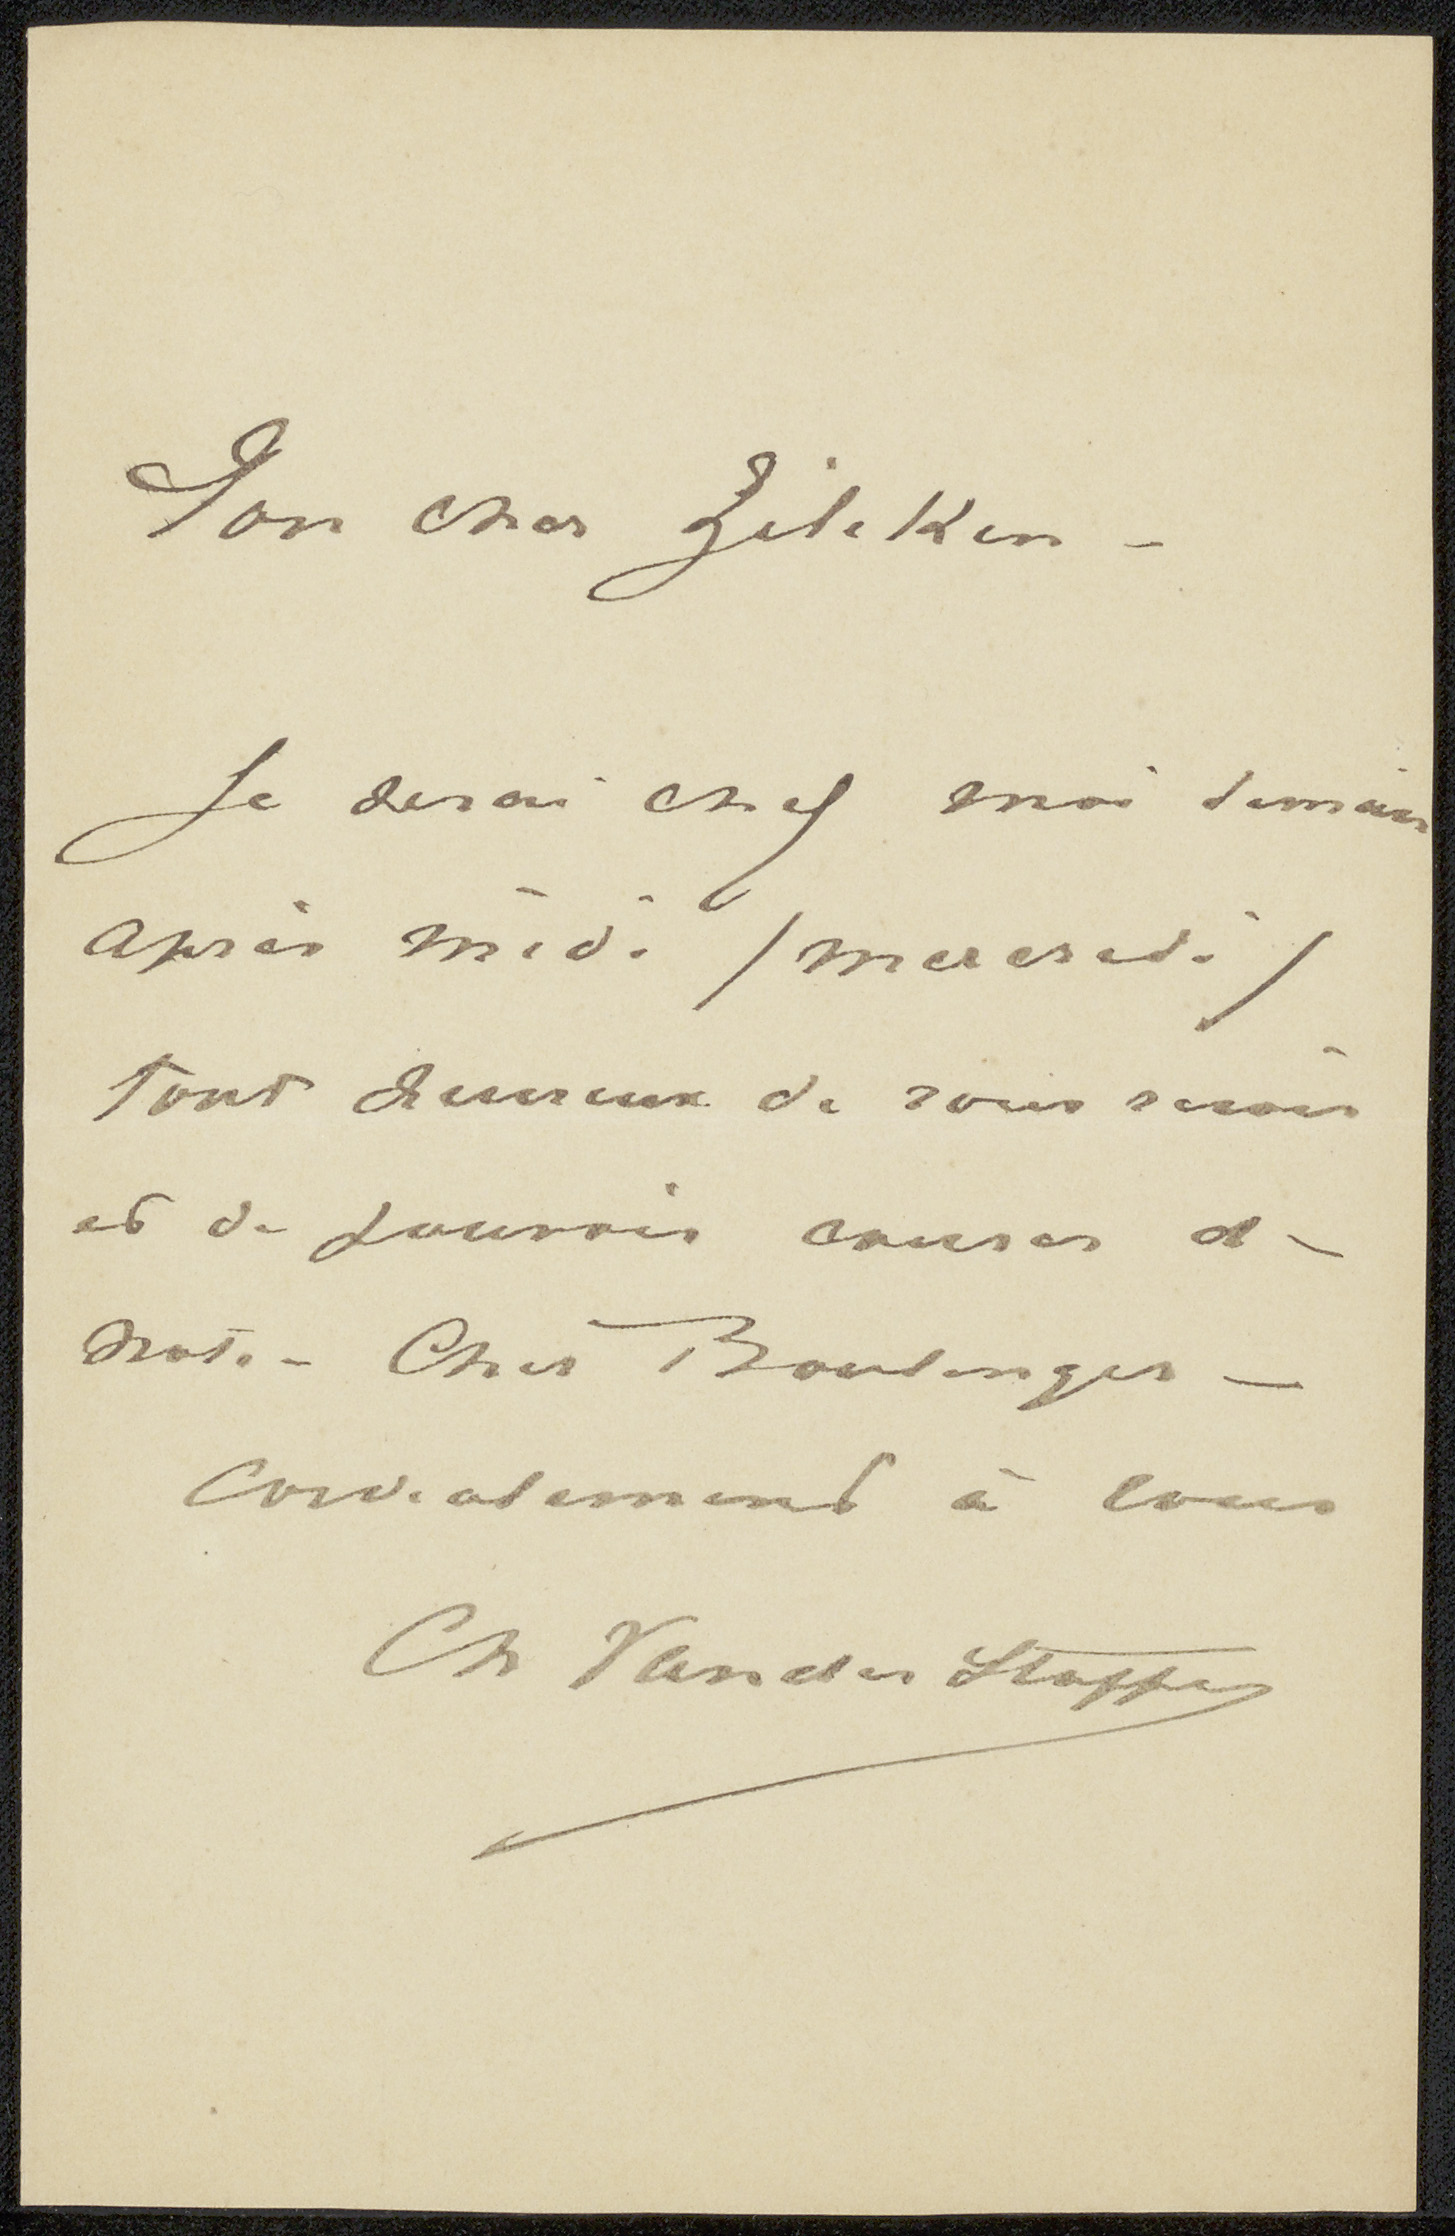 Mon cher Zilcken -
Je serai chez moi demain
après midi / mercredi /
tout heureux de vous revoir
et de pouvoir causer de
notre cher Boulenger -
Cordialement à vous
Ch Van der Stappen